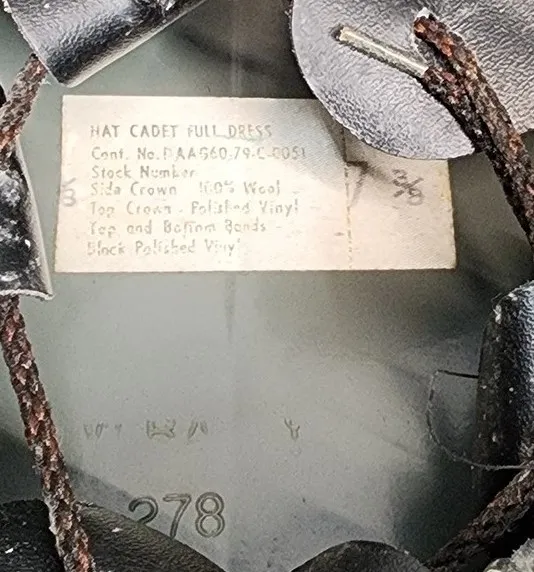 HAT CADET FULL DRESS
Cont. No. DAAG60-79-C-0051
Stock Number
Side Crown 100% Wool
7 3/8
Top Crown - Polished Vinyl
Top and Bottom Bands -
Black Polished Vinyl
278